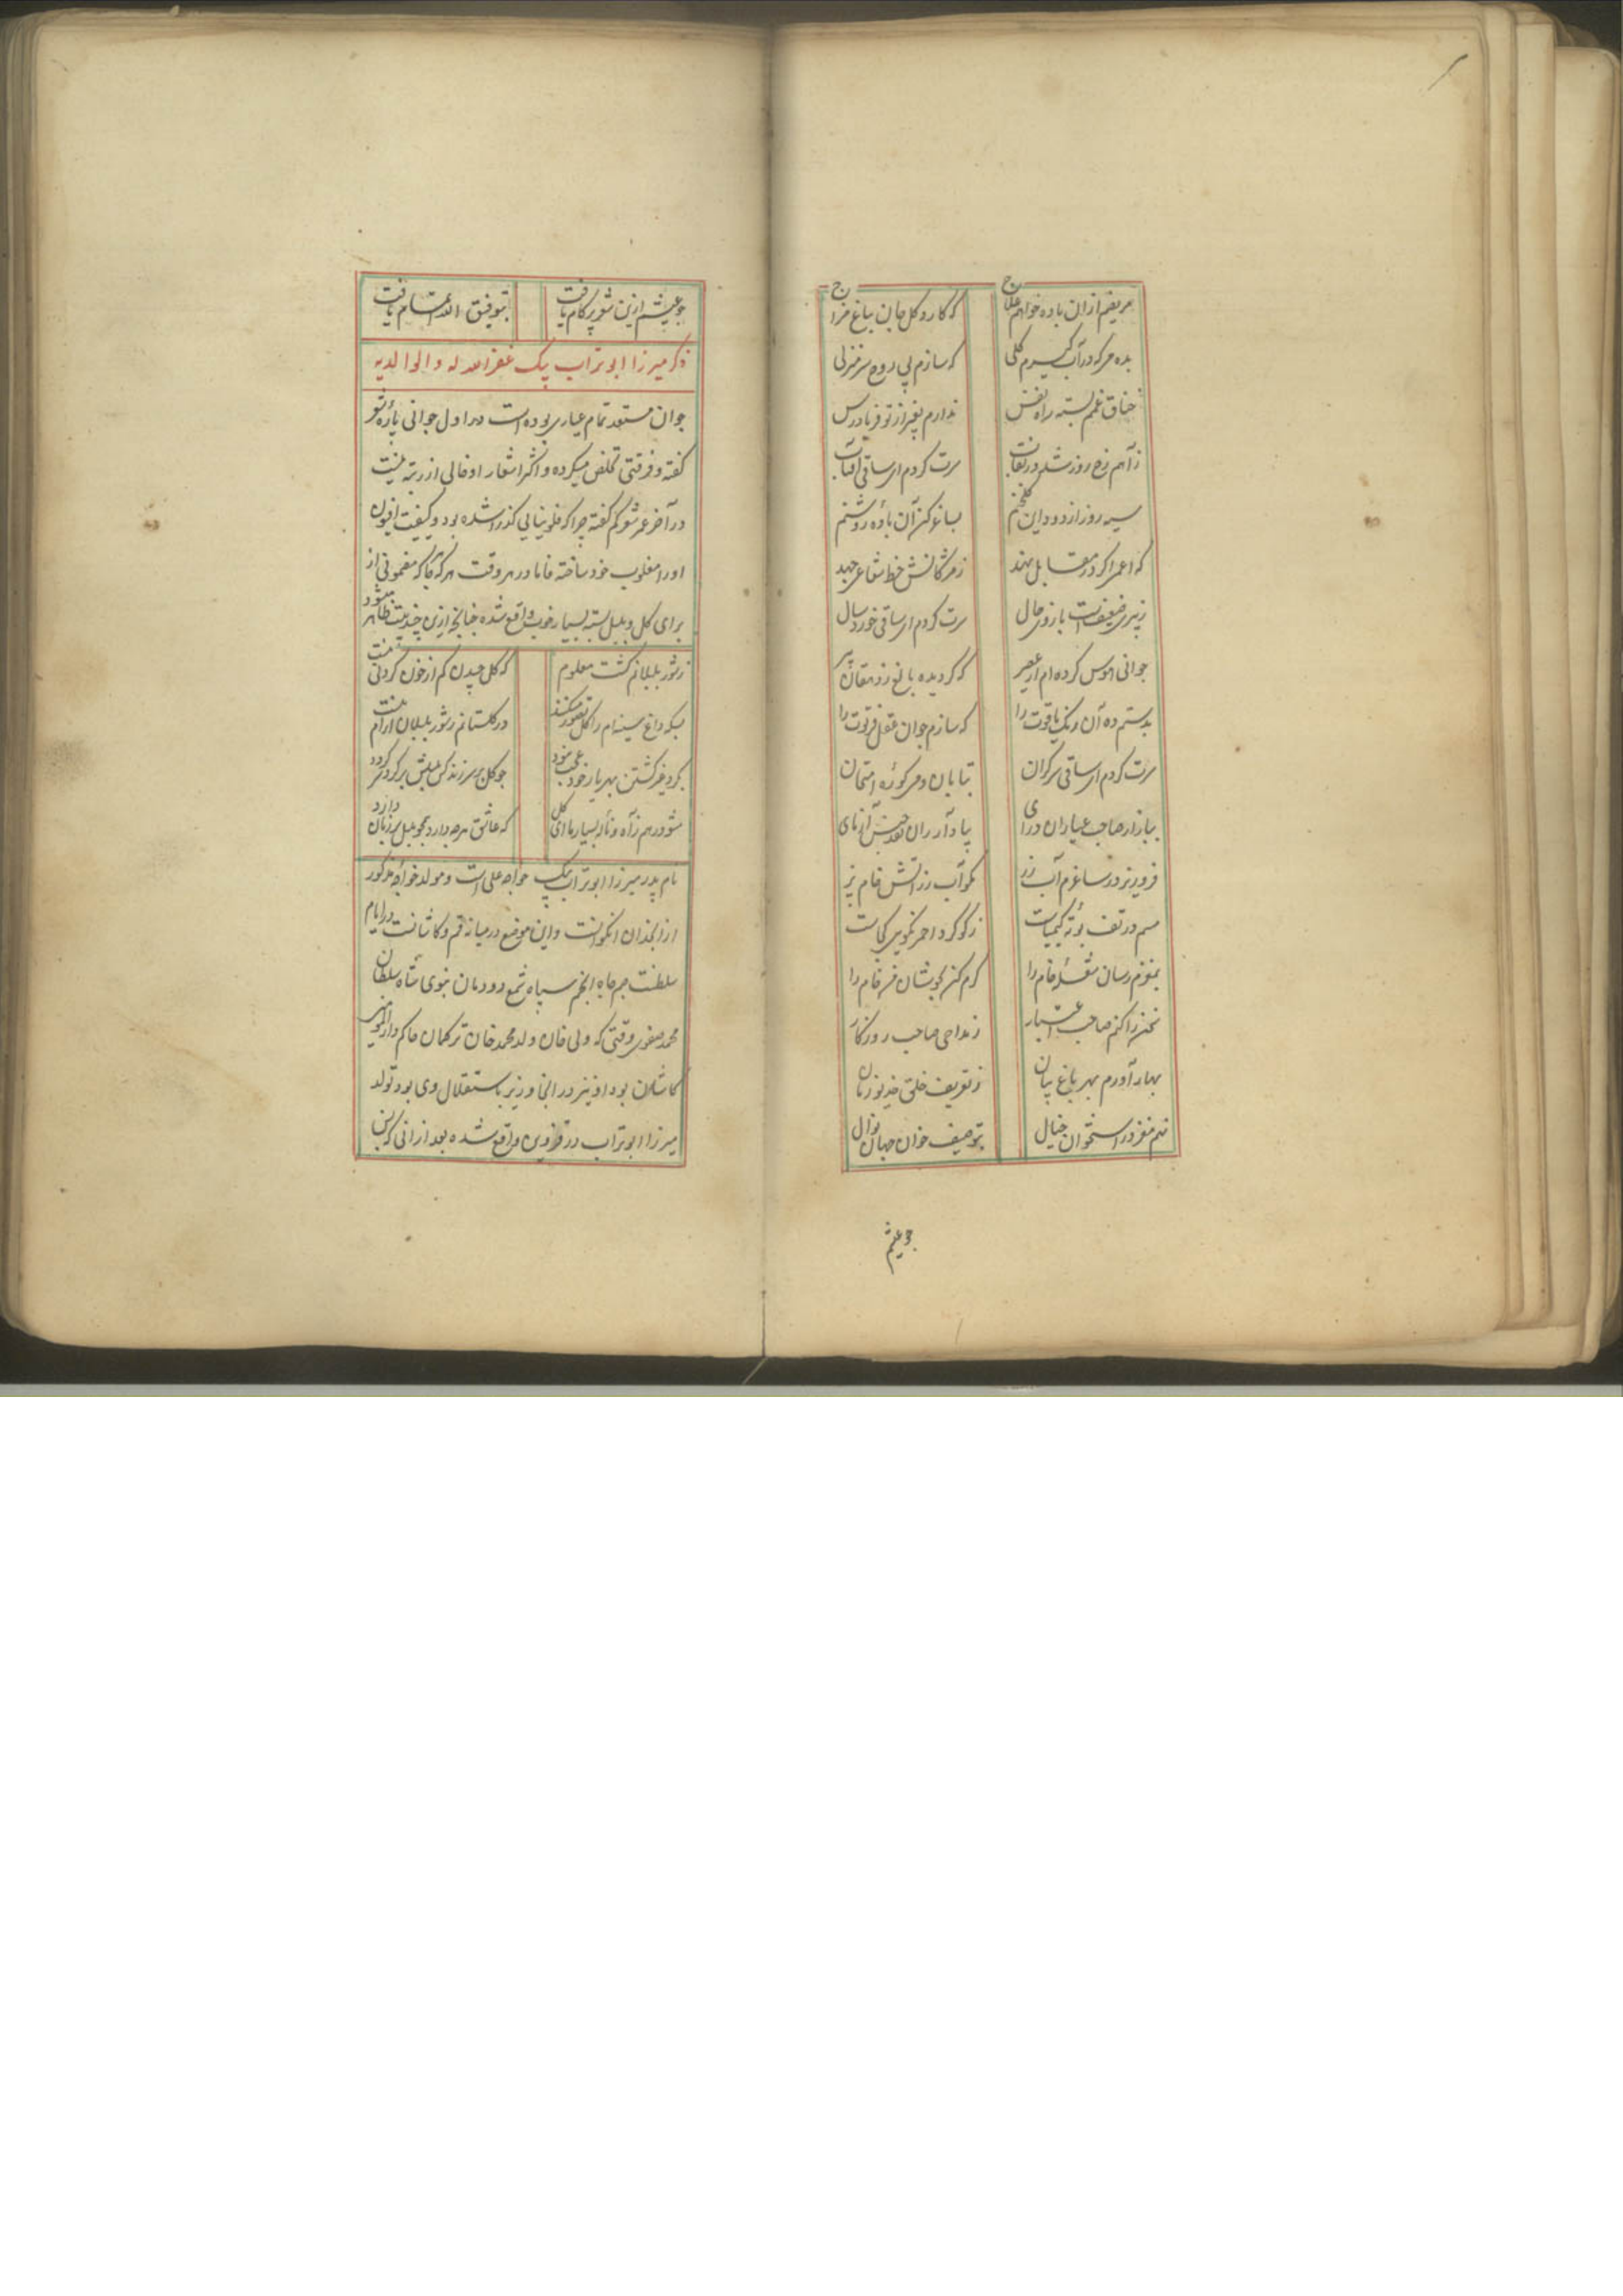 مریضم ازان باده خواهم علاج که کارد گل جان بباغ مزاج
بده می که در آب گیرم گلی که سازم پی روح سر منزلی
خناق غمم بسته راه نفس ندارم بغیر از تو فریادرس
ز آهم رخ روز شد در نقاب سرت کردم ای ساقی آفتاب
سیه روز از دود این گلخنم بساغر کن آن باده روشنم
که اعمی اگر در مقابل نهد ز مژگانش خط شعاعی جهد
ز پیری ضعیفست بازوی حال سرت کردم ای ساقی خورد سال
جوانی هوس کرده ام از عصیر که گردیده بالغ ز دهقان پیر
بدستم ده آن رنک یاقوت را که سازم جوان عقل فرتوت را
سرت کردم ای ساقی سرگران بتابان دمی کوره امتحان
ببازار صاحب عیاران درای بیاد آر زان نقد جنس آزمای
فرو ریز در ساغرم آب زر نکو آب زر زآتش خام پز
مسم در تف بوته کیمیاست ز گوگرد احمر نگویی کجاست
بمغزم رسان نشئه خام را کرم کن بجوشان می خام را
سخن را کنم صاحب اعتبار ز مداحی صاحب روزگار
بهار آورم بهر باغ بیان ز تعریف خلق خدیو زمان
نهم مغز در استخوان خیال بتوصیف خوان جهان نوال
جو عیشم
جو عیشم ازین شور پرکام یافت بتوفیق الله اتمام یافت
ذکر میرزا ابوتراب بیک غفر الله له و الوالدیه
جوان مستعد تمام عیاری بوده است در اول جوانی پاره شعر
گفته و فرقتی تخلص میکرده و اکثر اشعار او خالی از رتبه نیست
در آخر عمر شعر کم گفته چرا که فلونیایی گذرا شده بود و کیفیت افیون
او را مغلوب خود ساخته فاما در هر وقت هر گاه که مضمونی از
برای گل و بلبل بسته بسیار خوب واقع شده چنانچه ازین چند بیت ظاهر میشود
ز شور بلبلانم گشت معلوم که گل چیدن کم از خون کردنی نیست
بسکه داغ سینه ام را گل تصور میکنند در گلستانم ز شور بلبلان آرام نیست
گرد سر گشتن بهر یار خود عجب نبود جو گل بر سر زند کس بلبلش بر گرد سر گردد
مشو درهم ز آه و ناله بسیار ما ای گل که عاشق هرچه دارد همچو بلبل بر زبان دارد
نام پدر میرزا ابوتراب بیک خواجه علی است و مولد خواجه مذکور
از انجدان انکوانست و این موضع در میانه قم و کاشانست در ایام
سلطنت جم جاه انجم سپاه شمع دودمان نبوی شاه سلطان
محمد صفوی وقتی که ولی خان ولد محمد خان ترکمان حاکم دار المومنین
کاشان بود او نیز در انجا وزیر باستقلال وی بود تولد
میرزا ابوتراب در قزوین واقع شده بعد از انی که سن